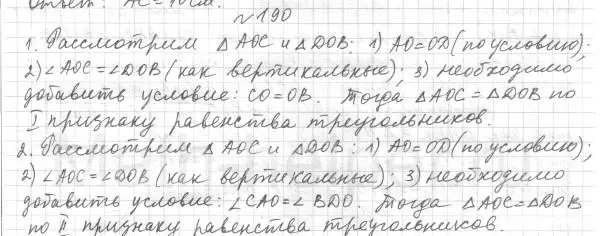 Ответ: AC = 10 см.
№190
1. Рассмотрим △ AOC и △DOB: 1) AO=OD (по условию);
2) ∠AOC=∠DOB (как вертикальные); 3) необходимо
добавить условие: CO=OB. Тогда △AOC=△DOB по
I признаку равенства треугольников.
2. Рассмотрим △ AOC и △DOB: 1) AO=OD (по условию);
2) ∠AOC=∠DOB (как вертикальные); 3) необходимо
добавить условие: ∠CAO=∠BDO. Тогда △AOC=△DOB
по II признаку равенства треугольников.